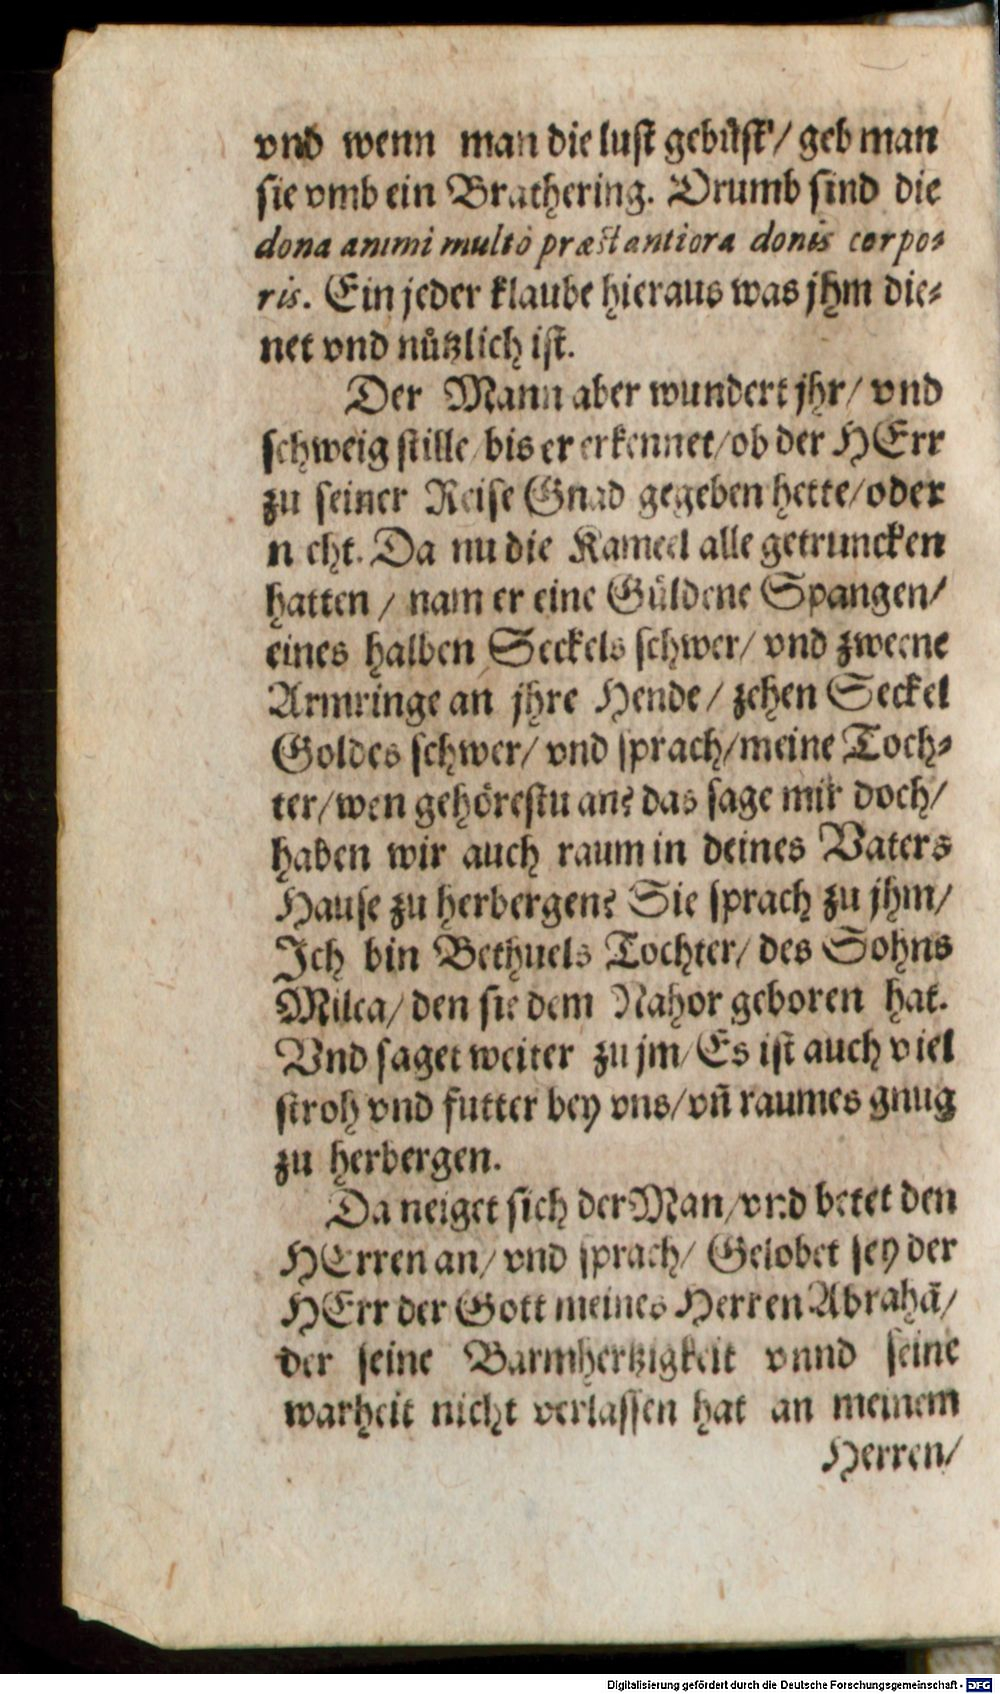 vnd wenn man die lust gebůst / geb man
sie vmb ein Brathering. Drumb sind die
dona animi multò præstantiora donis corpo⸗
ris. Ein jeder klaube hieraus was jhm die⸗
net vnd nůtzlich ist.
Der Mann aber wundert jhr / vnd
schweig stille / bis er erkennet / ob der HErr
zu seiner Reise Gnad gegeben hette / oder
n cht. Da nu die Kameel alle getruncken
hatten / nam er eine Güldene Spangen /
eines halben Seckels schwer / vnd zweene
Armringe an jhre Hende / zehen Seckel
Goldes schwer / vnd sprach / meine Toch⸗
ter / wen gehörestu an? das sage mir doch /
haben wir auch raum in deines Vaters
Hause zu herbergen? Sie sprach zu jhm /
Ich bin Bethuels Tochter / des Sohns
Milca / den sie dem Nahor geboren hat.
Vnd saget weiter zu jm / Es ist auch viel
stroh vnd futter bey vns / vñ raumes gnug
zu herbergen.
Da neiget sich der Man / vnd betet den
HErren an / vnd sprach / Gelobet sey der
HErr der Gott meines Herren Abrahã /
der seine Barmhertzigkeit vnnd seine
warheit nicht verlassen hat an meinem
Herren /
Digitalisierung gefördert durch die Deutsche Forschungsgemeinschaft - DFG